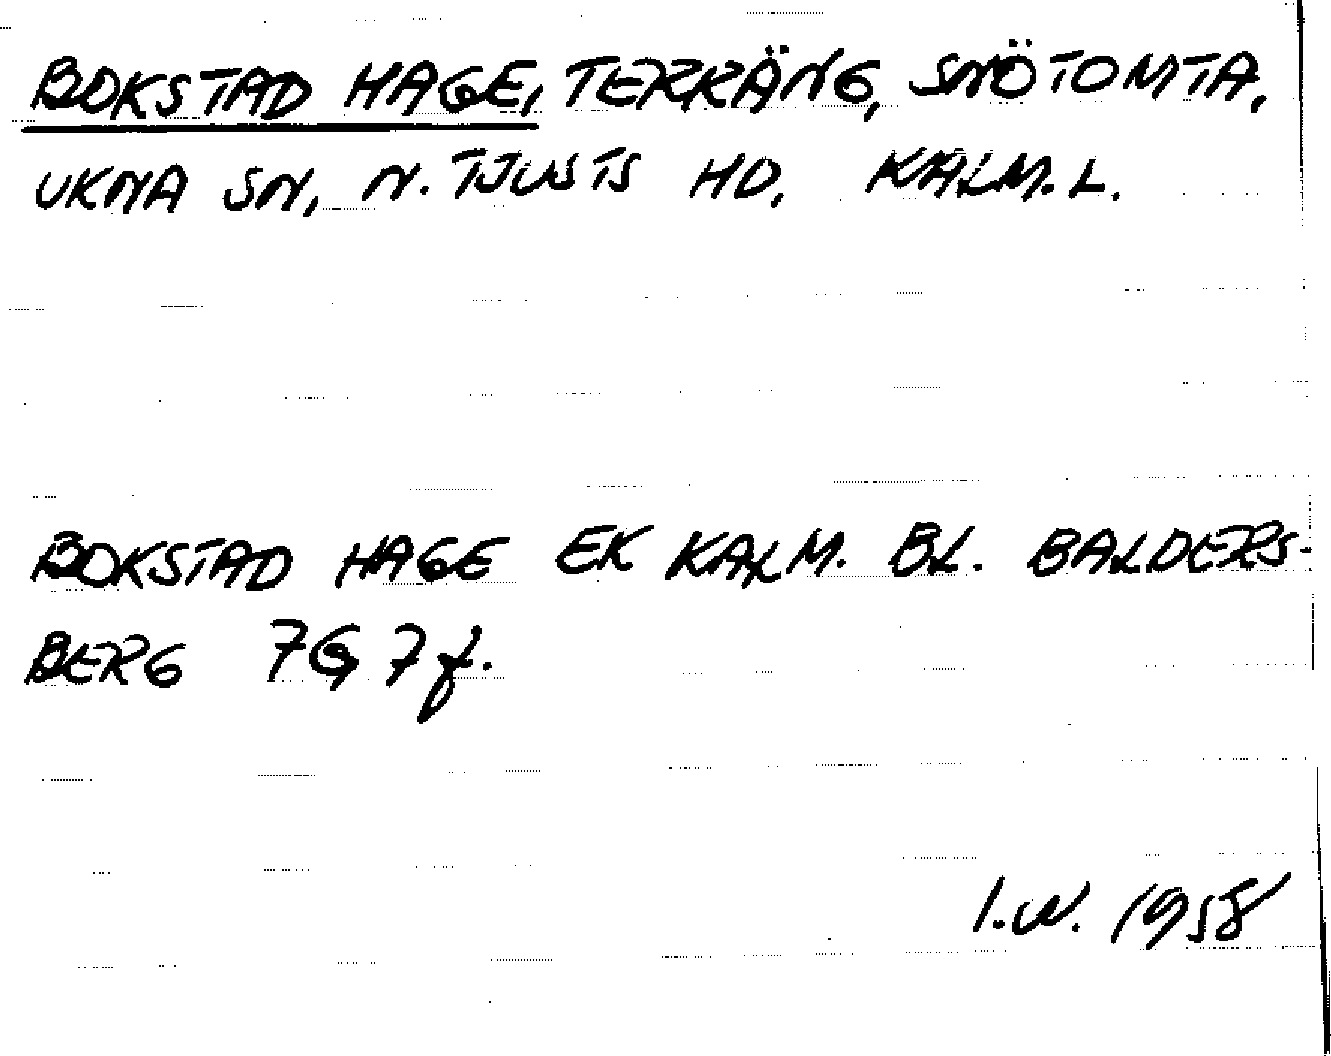 BOKSTAD HAGE, TERRÄNG, SNÖTOMTA,
UKNA SN, N. TJUSTS HD, KALM. L.
BOKSTAD HAGE EK KALM. BL. BALDERS-
BERG 7G 7f.
I.W. 1958